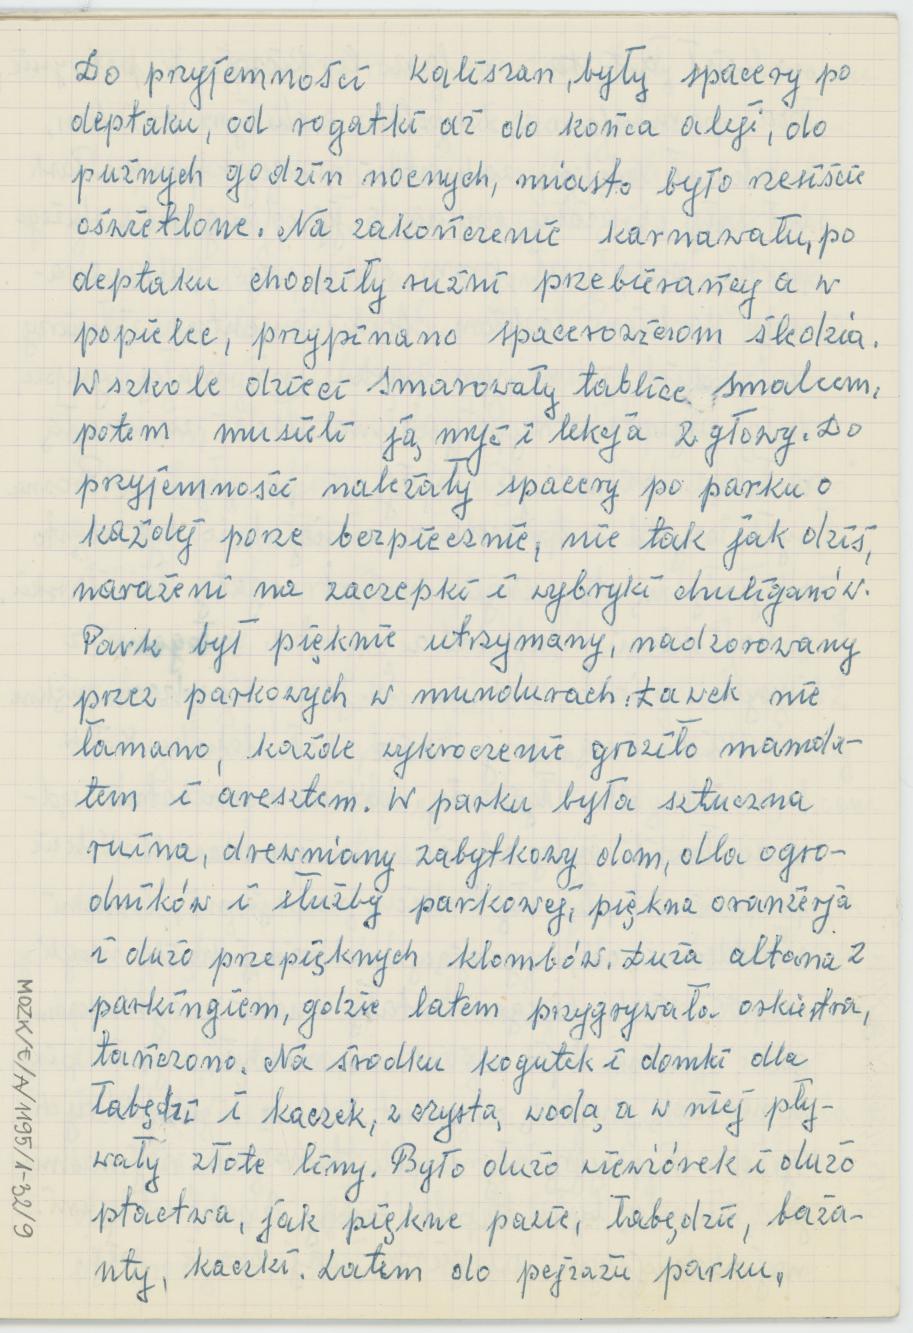 Do przyjemności Kaliszan, były spacery po
deptaku, od rogatki aż do końca aleji, do
puźnych godzin nocnych, miasto było rzesiście
oświetlone. Na zakończenie karnawału, po
deptaku chodziły rużni przebierańcy a w
popielec, przypinano spacerowiczom śledzia.
W szkole dzieci smarowały tablice smalcem,
potem musieli ją myć i lekcja z głowy. Do
przyjemności należały spacery po parku o
każdej porze bezpiecznie, nie tak jak dziś,
narażeni na zaczepki i wybryki chuliganów.
Park był pięknie utrzymany, nadzorowany
przez parkowych w mundurach. Ławek nie
łamano, każde wykroczenie groziło manda-
tem i aresztem. W parku była sztuczna
ruina, drewniany zabytkowy dom, dla ogro-
dników i służby parkowej, piękna oranżerja
i dużo przepięknych klombów. Duża altana z
parkingiem, gdzie latem przygrywała orkiestra,
tańczono. Na środku kogutek i domki dla
łabędzi i kaczek, z czystą wodą a w niej pły-
wały złote liny. Było dużo wiewiórek i dużo
ptactwa, jak piękne pazie, łabędzie, baża-
nty, kaczki. Latem do pejzażu parku,
MOZK/E/A/1195/1-32/9